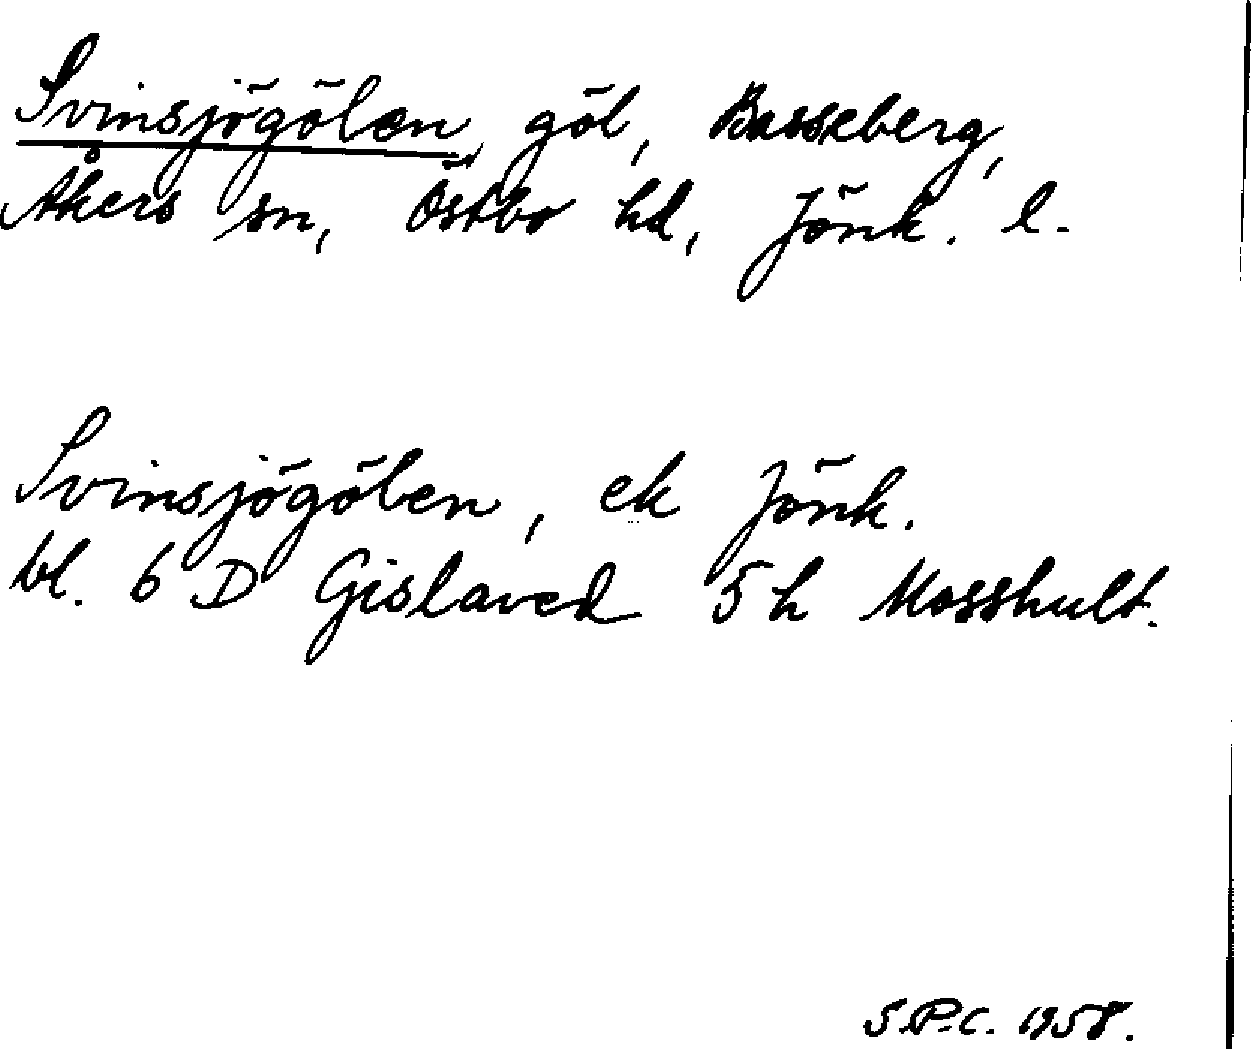 Svinsjögölen, göl, Basseberg,
Åkers sn, Östbo hd, Jönk. l.
Svinsjögölen, ek Jönk.
bl. 6 D Gislaved 5 h Mosshult.
S.P.C. 1958.